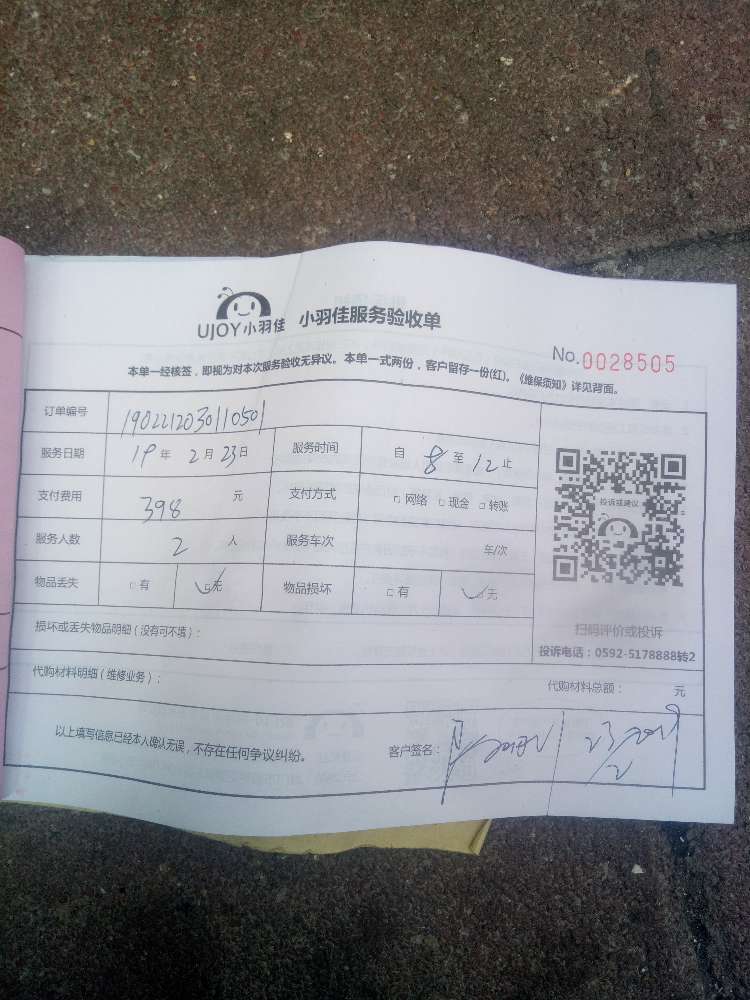 UJOY小羽佳 小羽佳服务验收单
No.0028505
本单一经核签，即视为对本次服务验收无异议。本单一式两份，客户留存一份(红)。《维保须知》详见背面。
订单编号 1902212030110501
服务日期 19年 2月 23日 服务时间 自 8 至 12 止
投诉或建议
支付费用 398 元 支付方式 □网络 □现金 □转账
服务人数 2 人 服务车次 车/次
物品丢失 □有 ☑无 物品损坏 □有 ☑无
损坏或丢失物品明细（没有可不填）：
扫码评价或投诉
投诉电话：0592-5178888转2
代购材料明细（维修业务）： 代购材料总额： 元
以上填写信息已经本人确认无误，不存在任何争议纠纷。 客户签名： 23/2/2019